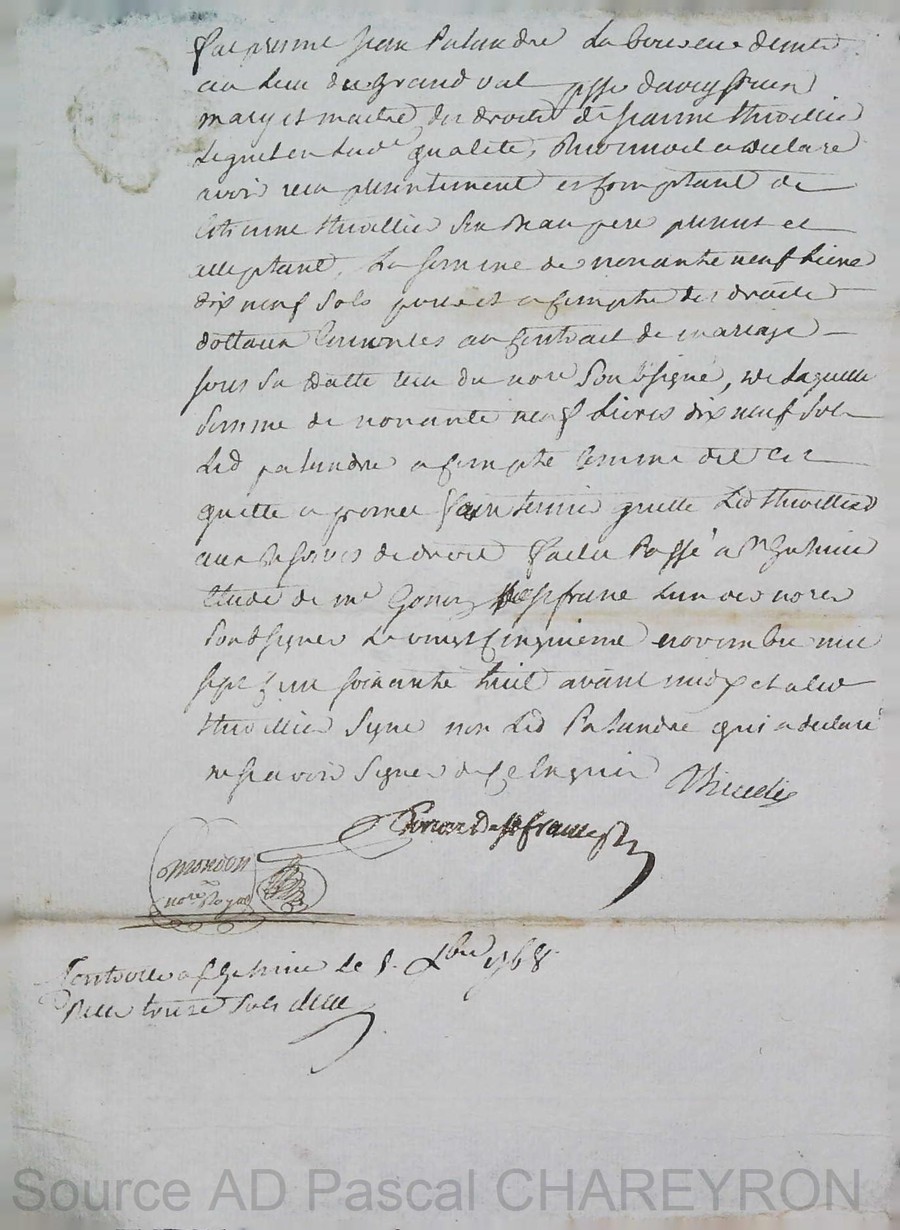 fut presant Jean Palandre Laboureur demt
au lieu du Grand val ppsse daveysieux
mary et maitre des droits de Jeanne thivollier
Lequel en lade qualité,
avoir reçu presentement et comptant de
Estienne thivollier son Beau pere present et
acceptant, La somme de nonante neuf Livres
dix neuf sols pour et a compte des droits
dottaux au contract de mariage
sous sa datte reçu du nore soubsigné, de Laquelle
somme de nonante neuf Livres dix neuf sols
Led palandre a compte comme dit est
quitte a promet faire tenir quitte Led thivollier
aux de droit fait et Passé a St
étude de me L'un des nores
soubsignes Le vingt Cinquieme novembre mil
sept cent soixante huit avant midy et aled
thivollier signé non Led Palandre qui a declaré
ne sçavoir signer de ce Enquis Thivollier

mordon
nore Royal
Controllé a le 1. Xbre 1768
Reçu treize sols
Source AD Pascal CHAREYRON